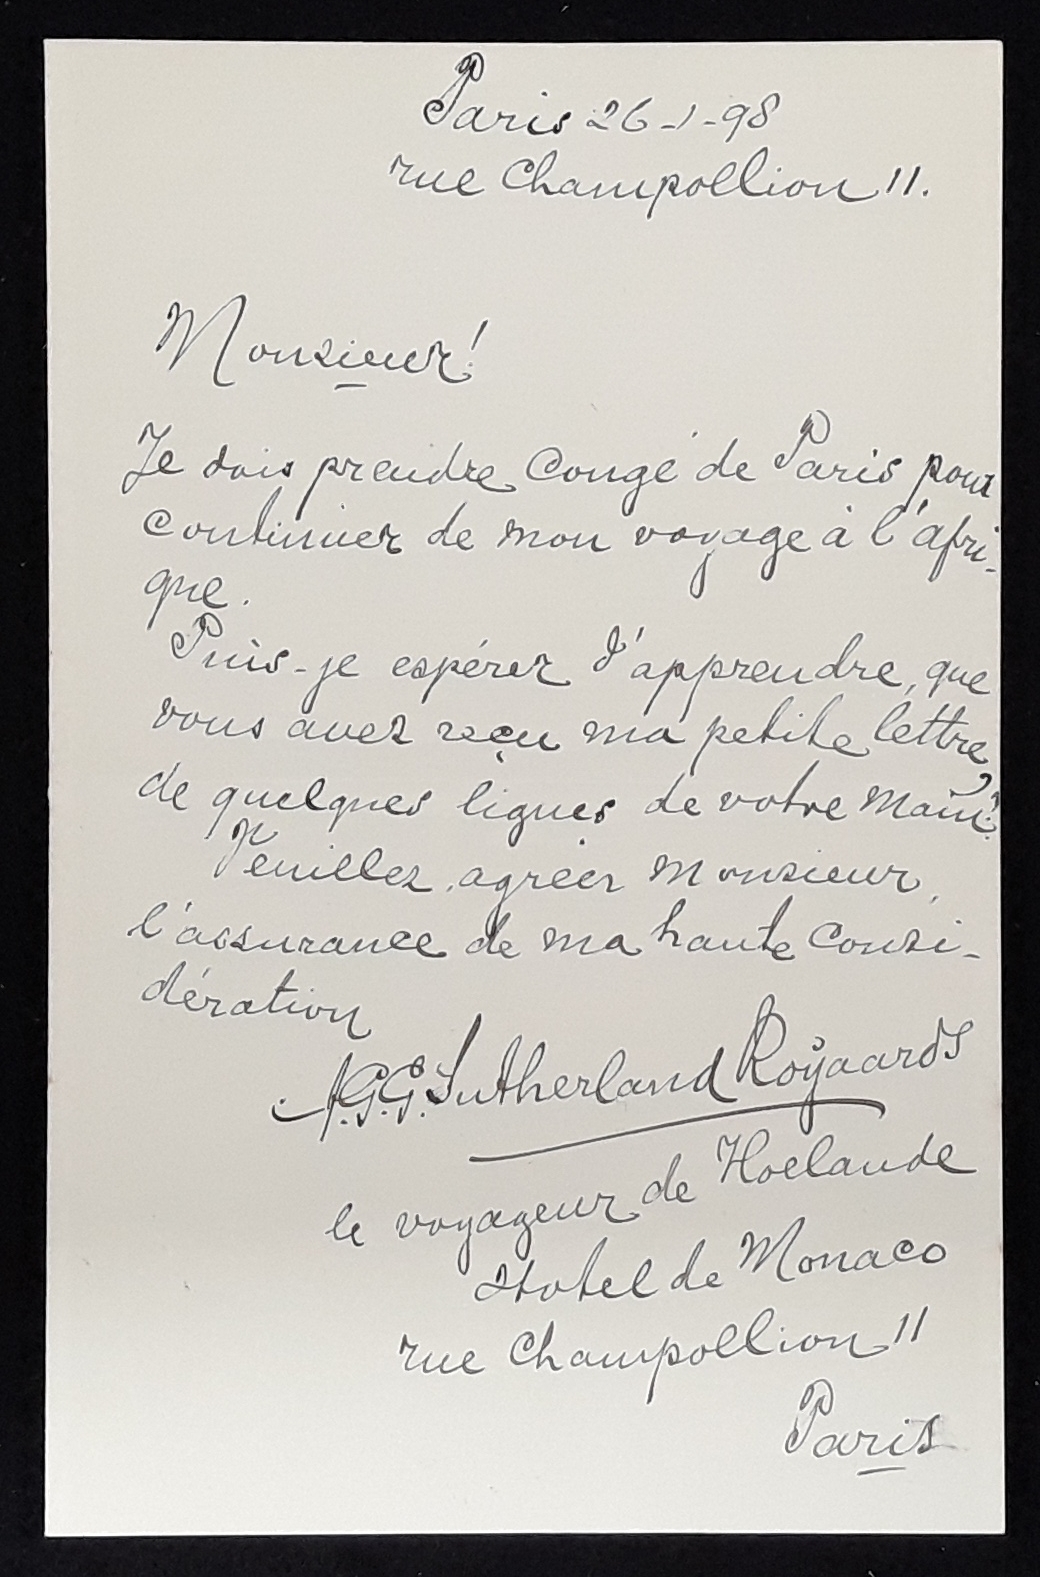 Paris 26-1-98
rue Champollion 11.
Monsieur!
Je dois prendre Congé de Paris pour
continuer de mon voyage à l'afri-
que.
Puis-je espérer d'apprendre, que
vous avez reçu ma petite lettre,
de quelques lignes de votre main?
Veuillez agréer Monsieur,
l'assurance de ma haute Consi-
dération
A.G.G. Sutherland Roÿaards
le voyageur de Hollande
Hotel de Monaco
rue Champollion 11
Paris